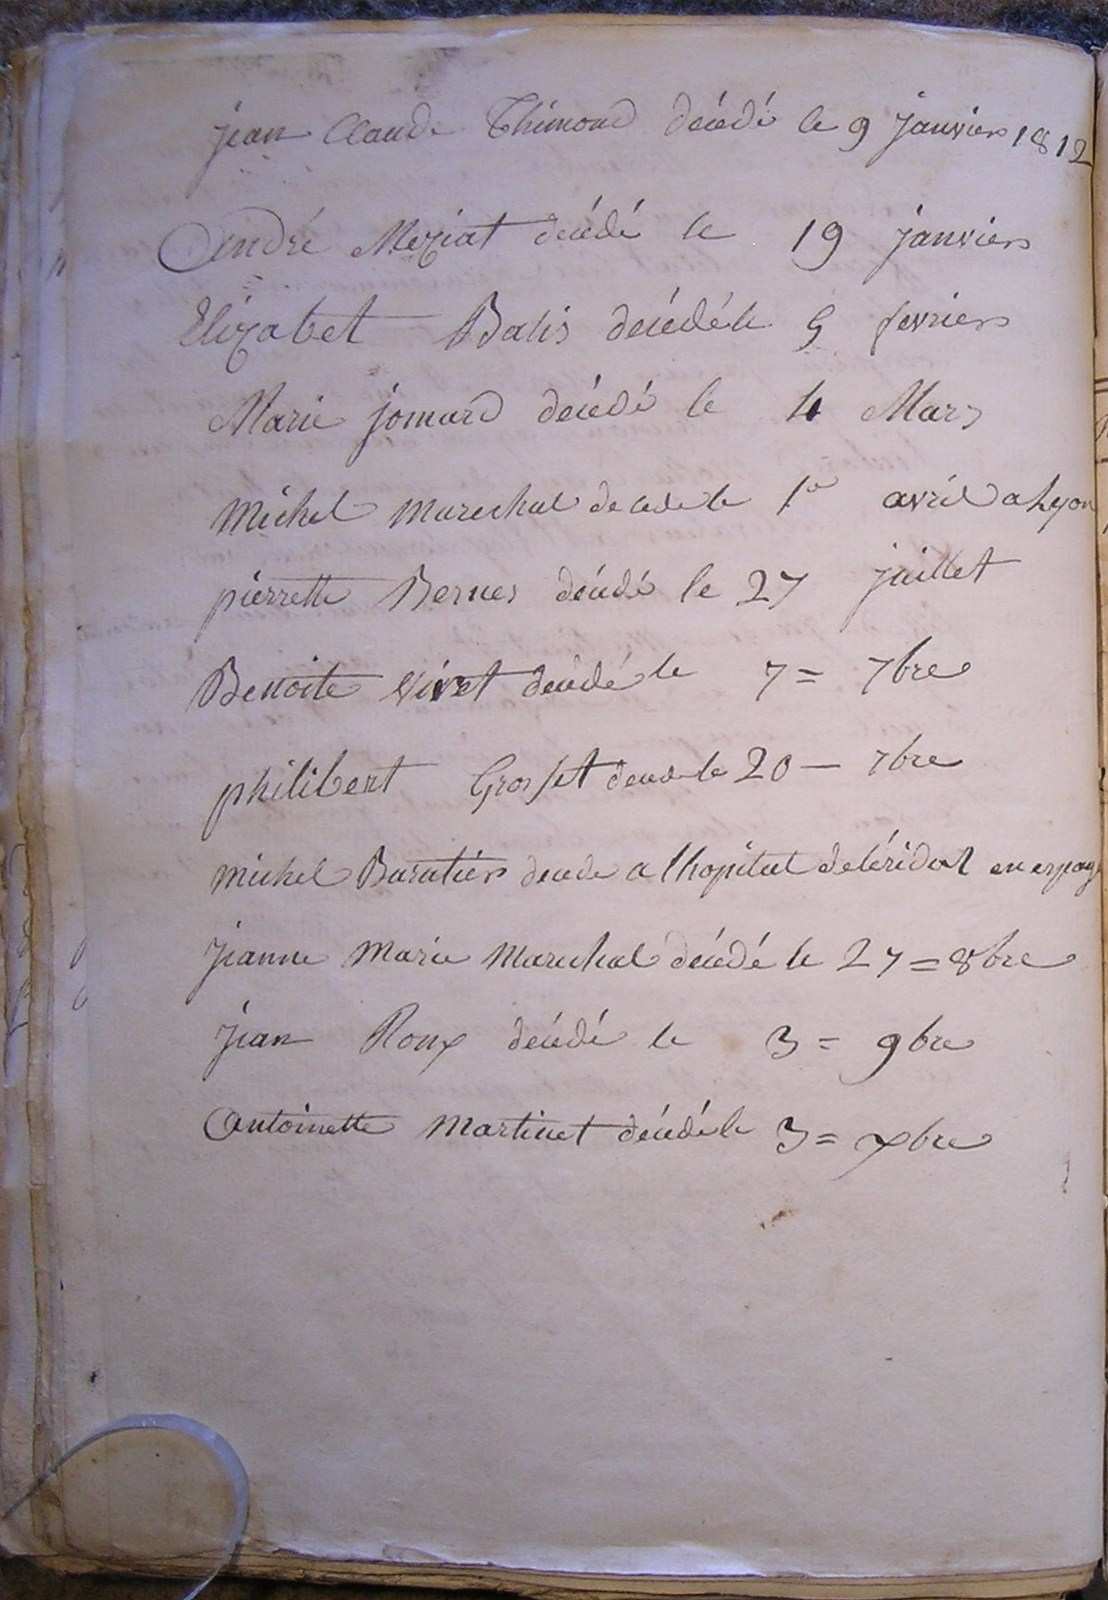 jean Claude Thimond décédé le 9 janvier 1812
André Meziat décédé le 19 janvier
Elizabet Balis décédé le 5 fevrier
Marie jomard décédé le 4 Mars
Michel marechal decede le 1er avril a Lyon
pierrette Bernes décédé le 27 juillet
Benoite Vivet décédé le 7 = 7bre
philibert Grosset decede le 20 — 7bre
michel Baratier decede a lhopital de en espag
jeanne marie marechal décédé le 27 = 8bre
jean Roux décédé le 3 = 9bre
antoinette martinet décédé le 3 = xbre